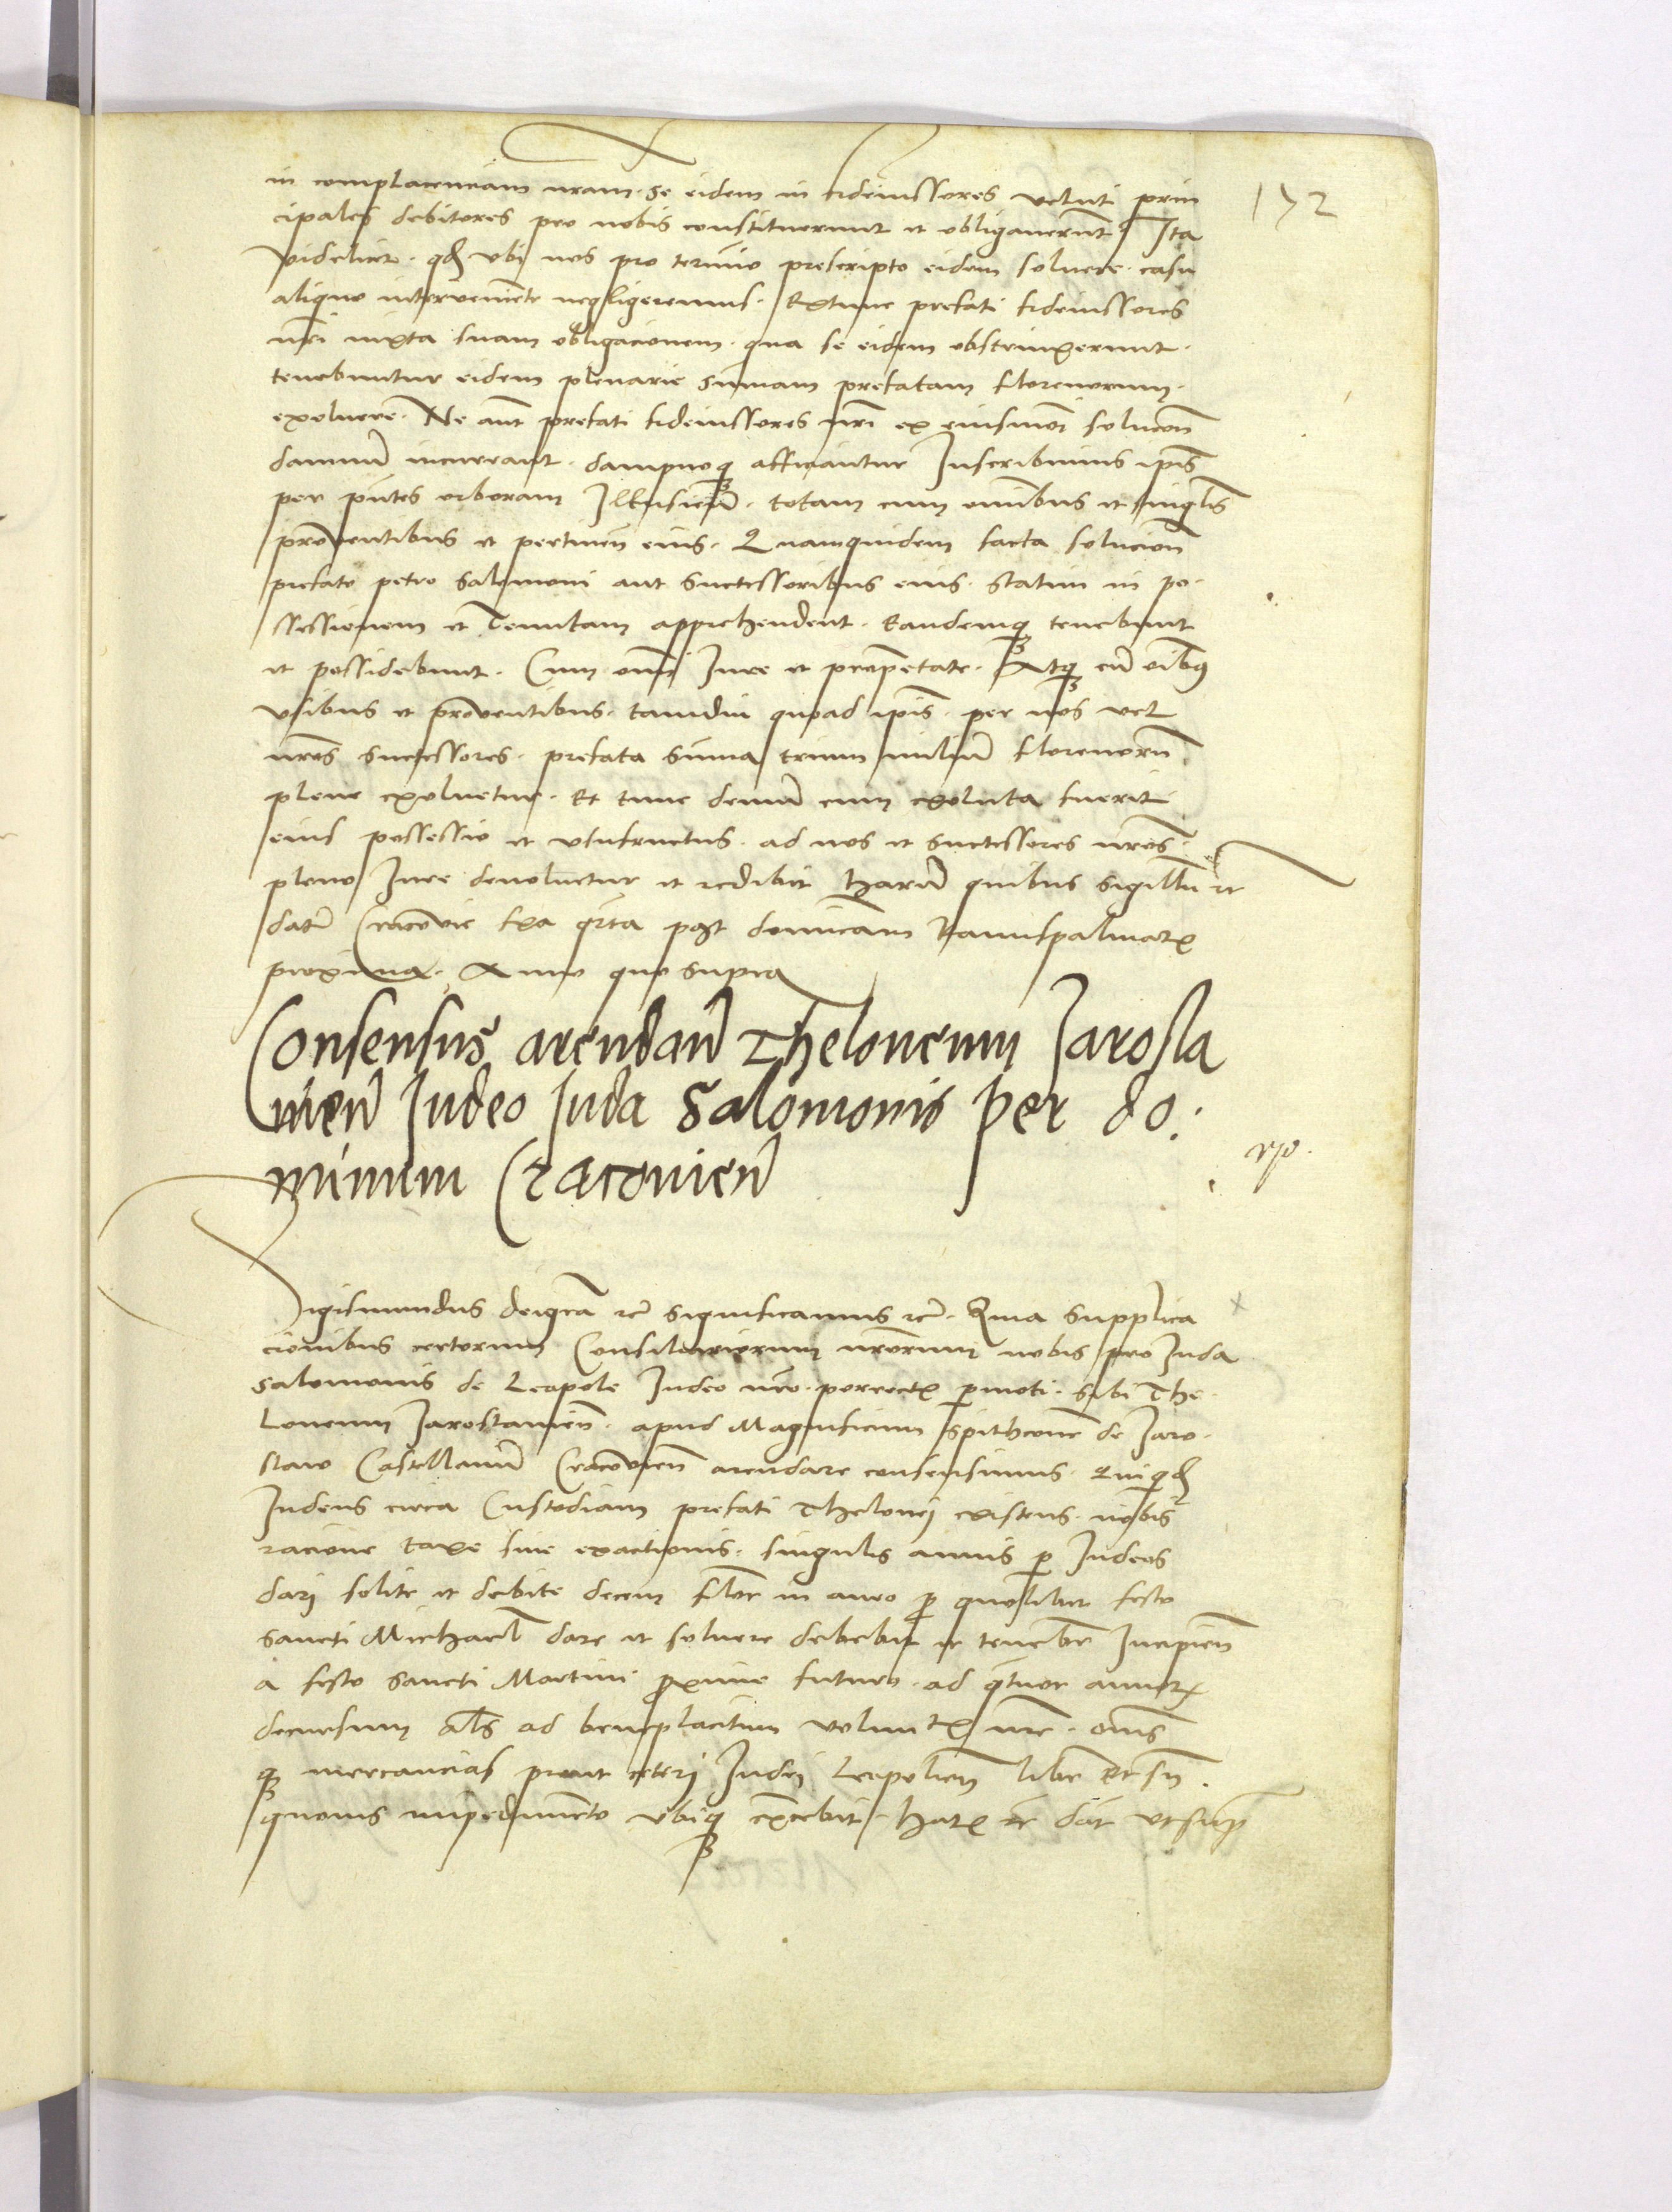 in complacenciam nram. se eidem in fideiussores veluti prin
172
cipales debitores pro nobis constituerunt et obligaverunt Ita
videlicet. qd ubi nos pro termio prescripto eidem soluere. casu
aliquo interveniente negligeremus. Extunc prefati fideiussores
nri iuxta suam obligacionem. qua se eidem obstrinxerunt.
tenebuntur eidem plenarie sumam prefatam florenorum.
exoluere. Ne aut prefati fideiussores nri ex eiusmoi solucon
damnu incurrant. dampnoq afficiantur Inscribimus ipis
per pntes orboram Ilkusien. totam cum omibus et singlis
proventibus et pertinen eius. Quamquidem facta solucion
prefato petro Salomoni aut Successoribus eius. statim in po-
ssessionem et Tenutam apprehendent. Eandemq tenebunt
et possidebunt. Cum omi Iure et propetate. Atq cu oibus
usibus et proventibus. tamdiu quoad ipis. per nos vel
nros successores. prefata suma trium miliu florenoru
plene exoluetur. Et tunc demu cum exoluta fuerit
eius possessio et usufructus. ad nos et successores nros.
pleno Iure devoluetur et redibit Haru quibus sigillu et
datu Cracovie fia qrta post dominicam Ramispalmar
proxima. Anno quo supra
Consensus arendan Theloneum Jarosla
vien Iudeo Iuda Salomonis per do:
minum Cracovien
Sigismundus deigra etc significamus etc. Quia supplica
cionibus certorum Consiliariorum nrorum nobis pro Iuda
salomonis de Leopole Iudeo nro. porrectis pmoti. sibi The-
loneum Jaroslavien. apud Magnificum Spithconem de Jaro-
slaw Castellanu Cracovien arendare consensimus. Quiqd
Iudeus circa Custodiam prefati Thelonej existens. nobis
racione taxe sive exactionis. singulis annis p Iudeos
dari solite et debite decem flor in auro p quolibet festo
sancti Michael dare et soluere debebit et tenebr Incipien
a festo sancti Martini pxime futuro. ad qtuor annor
decursum als ad beneplacitum volunt nre. omis
q mercancias prout ceteri Iudei Leopolien libere et sn
quovis impedimento ubiq excebit. Har etc dat ut supra